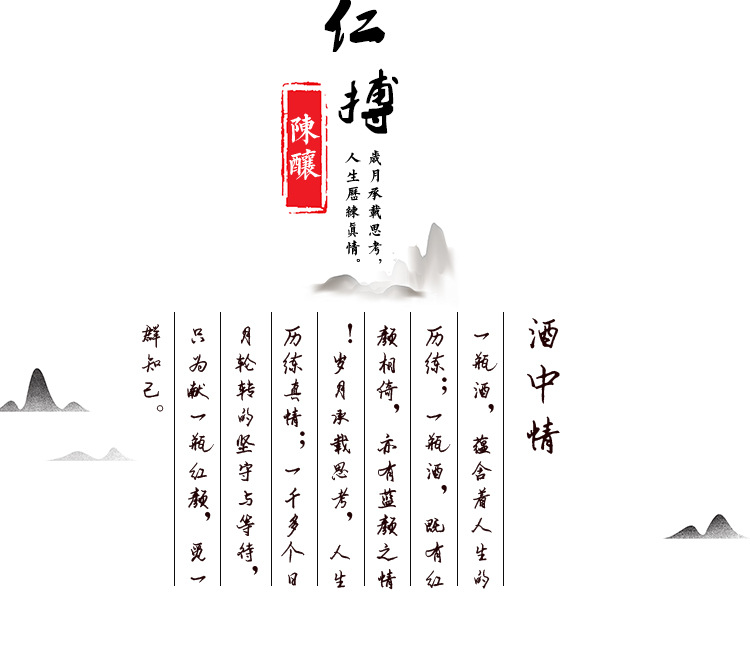 仁搏
陳釀
歲月承載思考，
人生歷練真情。
酒中情
一瓶酒，蕴含着人生的
历练；一瓶酒，既有红
颜相倚，亦有蓝颜之情
！岁月承载思考，人生
历练真情；一千多个日
月轮转的坚守与等待，
只为献一瓶红颜，觅一
群知己。